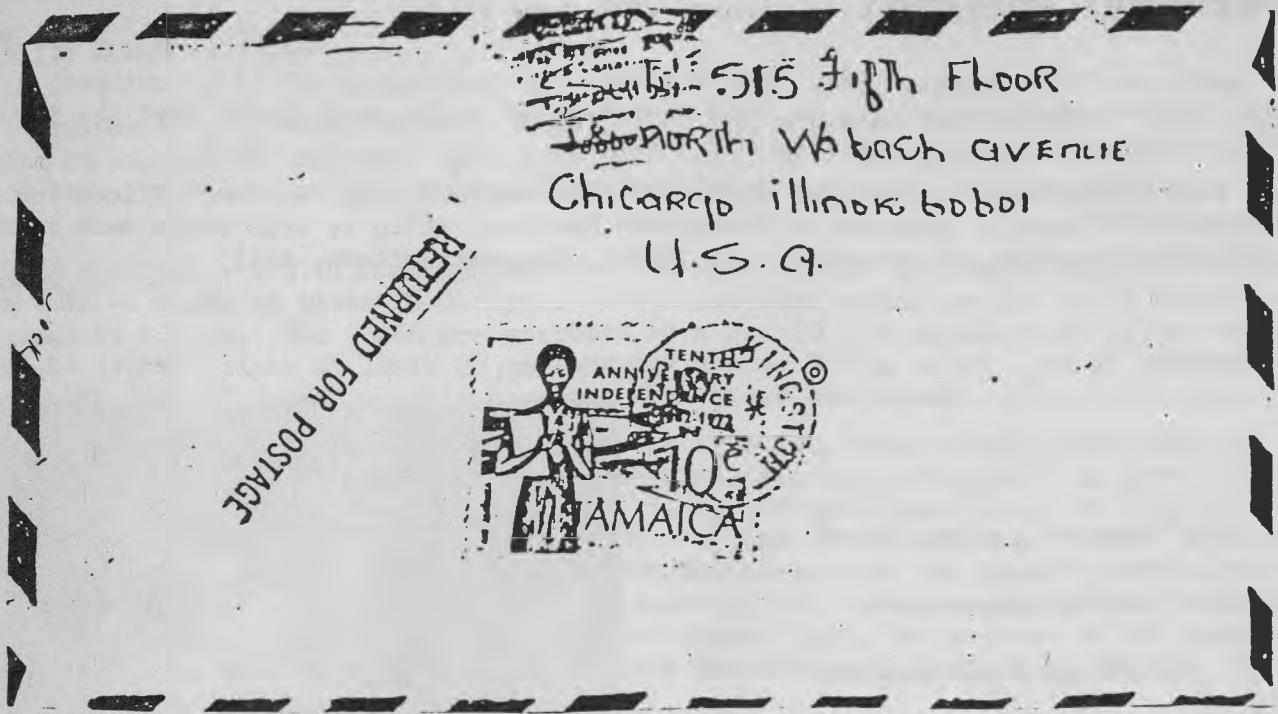 515 Fifth FLOOR
NORTH Wabach aVENUE
Chicargo illinok 60601
U.S.A.
RETURNED FOR POSTAGE
TENTH
ANNIVERSARY
INDEPENDENCE
10c
JAMAICA
KINGSTON